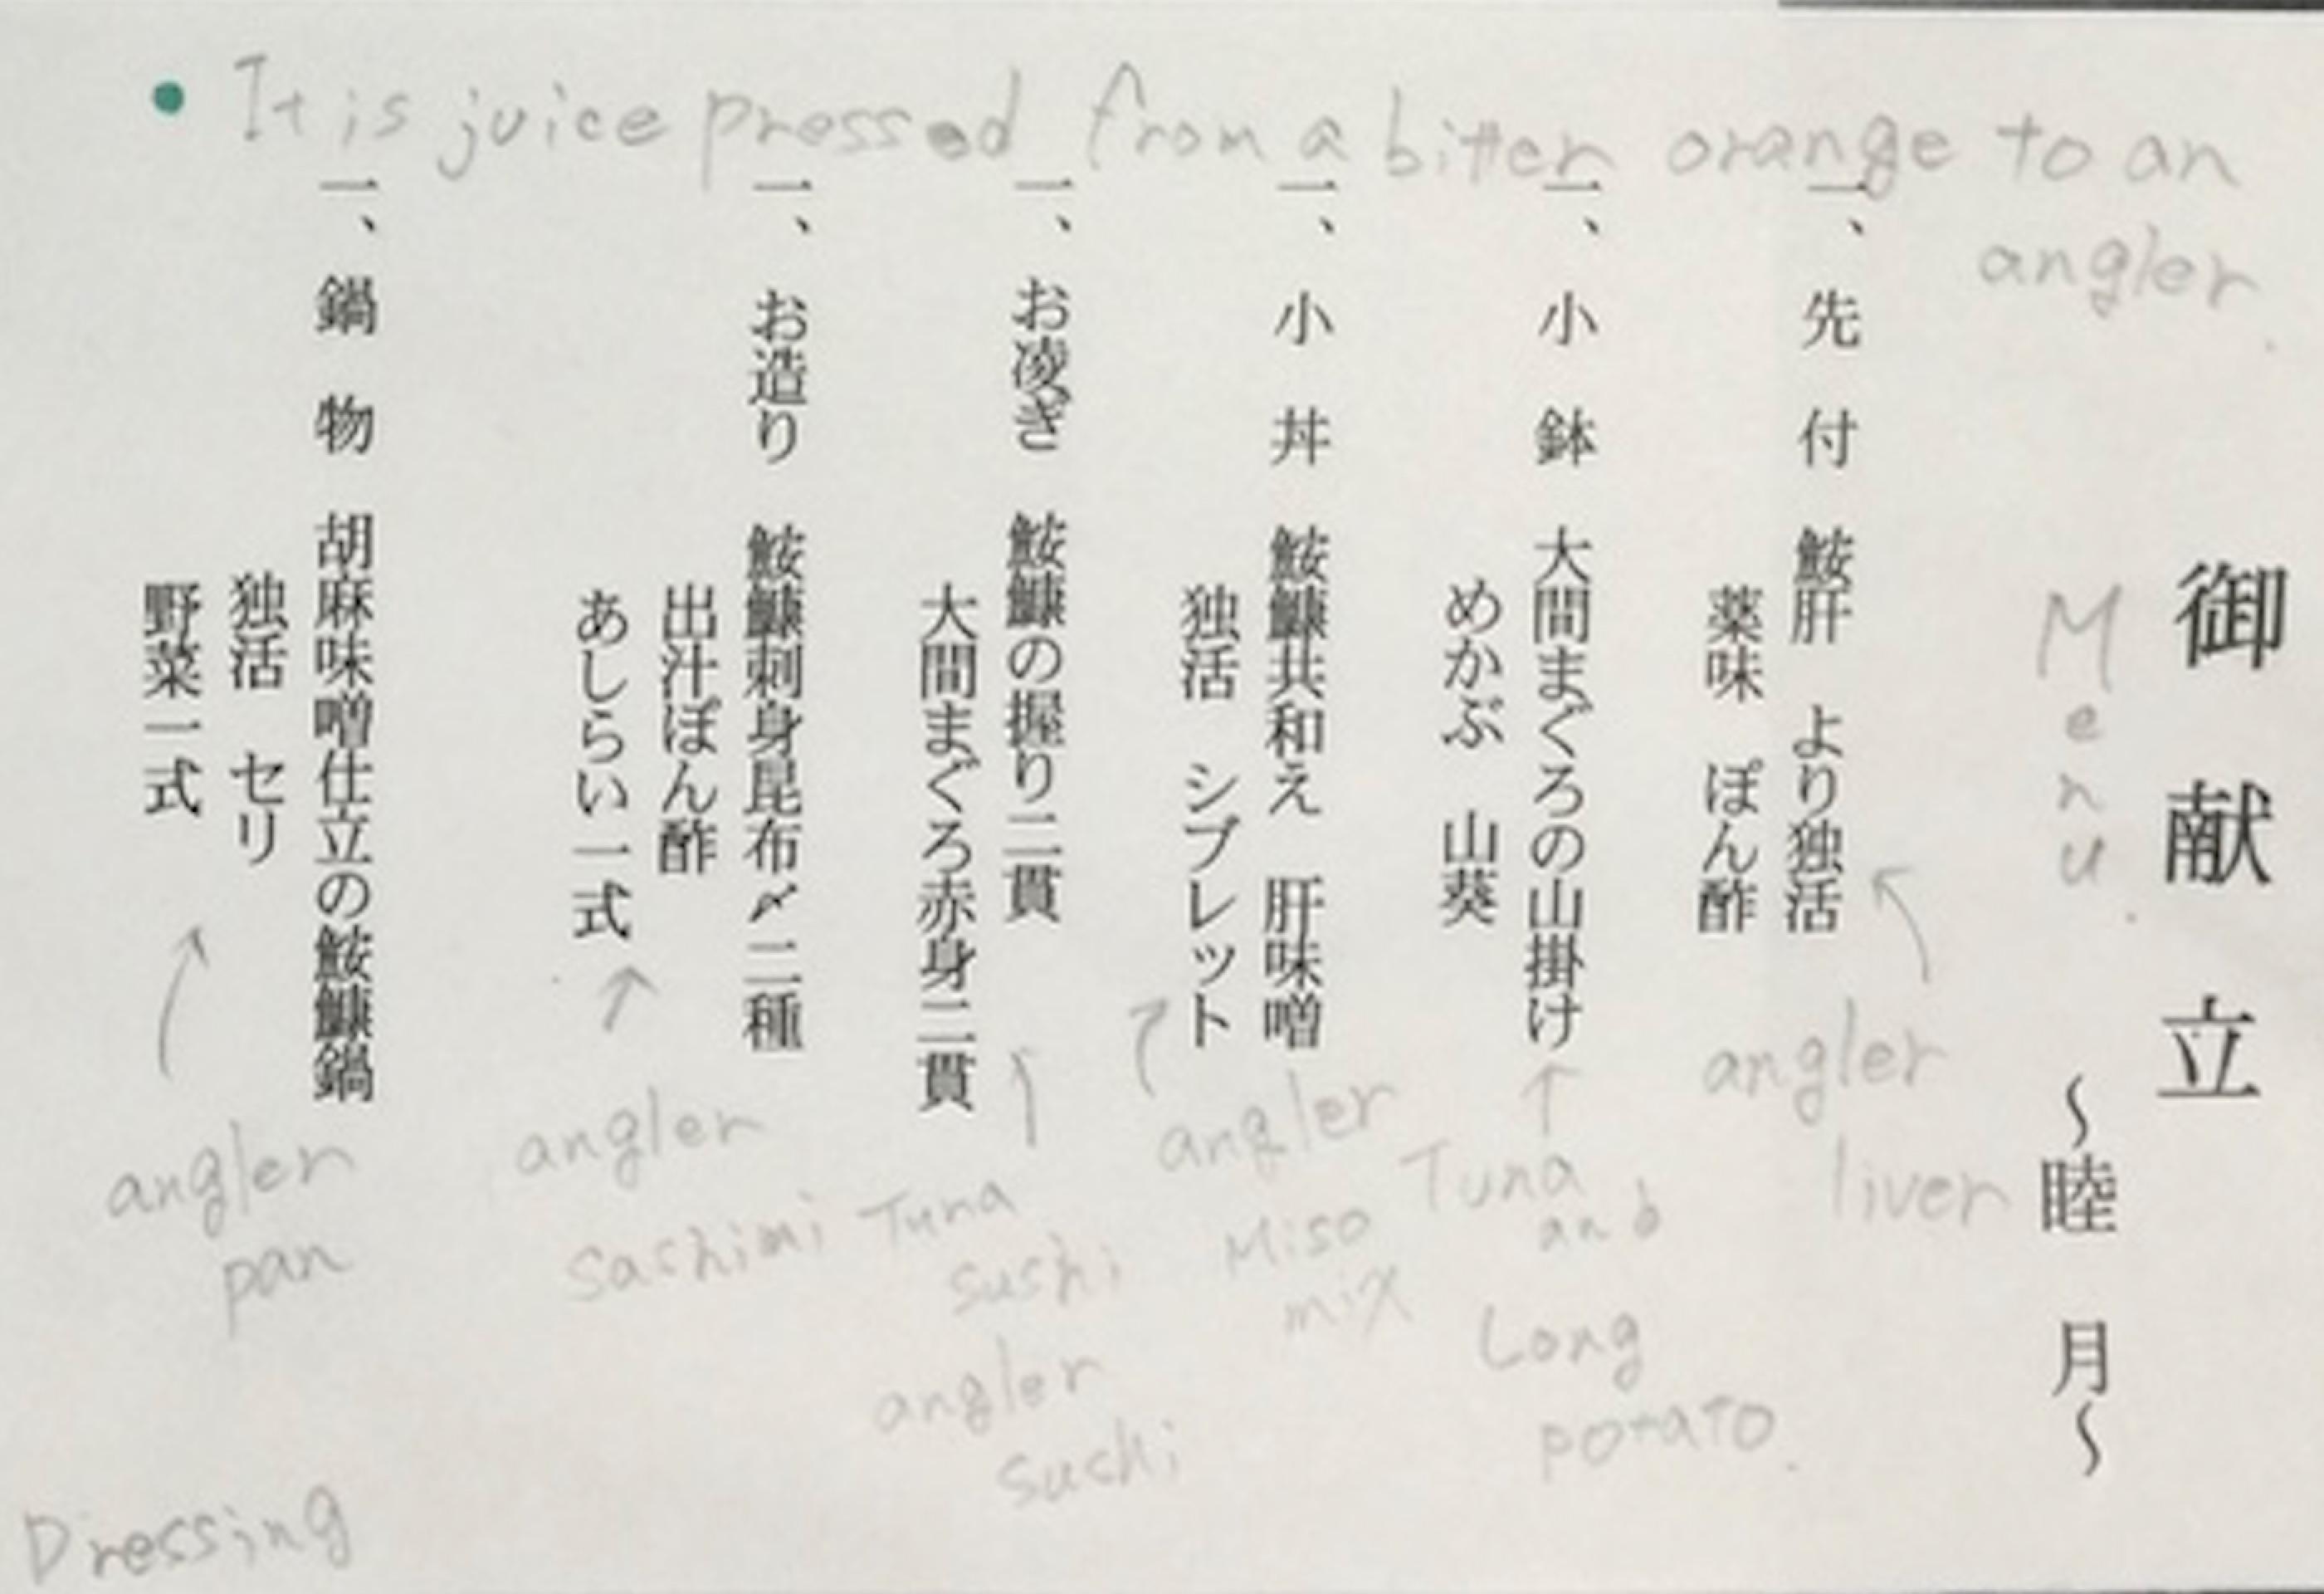 • It is juice pressed from a bitter orange to an
angler.
御献立
Menu
～睦 月～
一、先 付 鮟肝 より独活
薬味 ぽん酢
angler
liver
一、小 鉢 大間まぐろの山掛け
めかぶ 山葵
Tuna
and
Long
potato.
一、小 丼 鮟鱇共和え 肝味噌
独活 シブレット
angler
Miso
mix
一、お凌ぎ 鮟鱇の握り二貫
大間まぐろ赤身二貫
Tuna
sushi
angler
sushi
一、お造り 鮟鱇刺身昆布〆二種
出汁ぽん酢
あしらい一式
angler
sashimi
一、鍋 物 胡麻味噌仕立の鮟鱇鍋
独活 セリ
野菜一式
angler
pan
Dressing